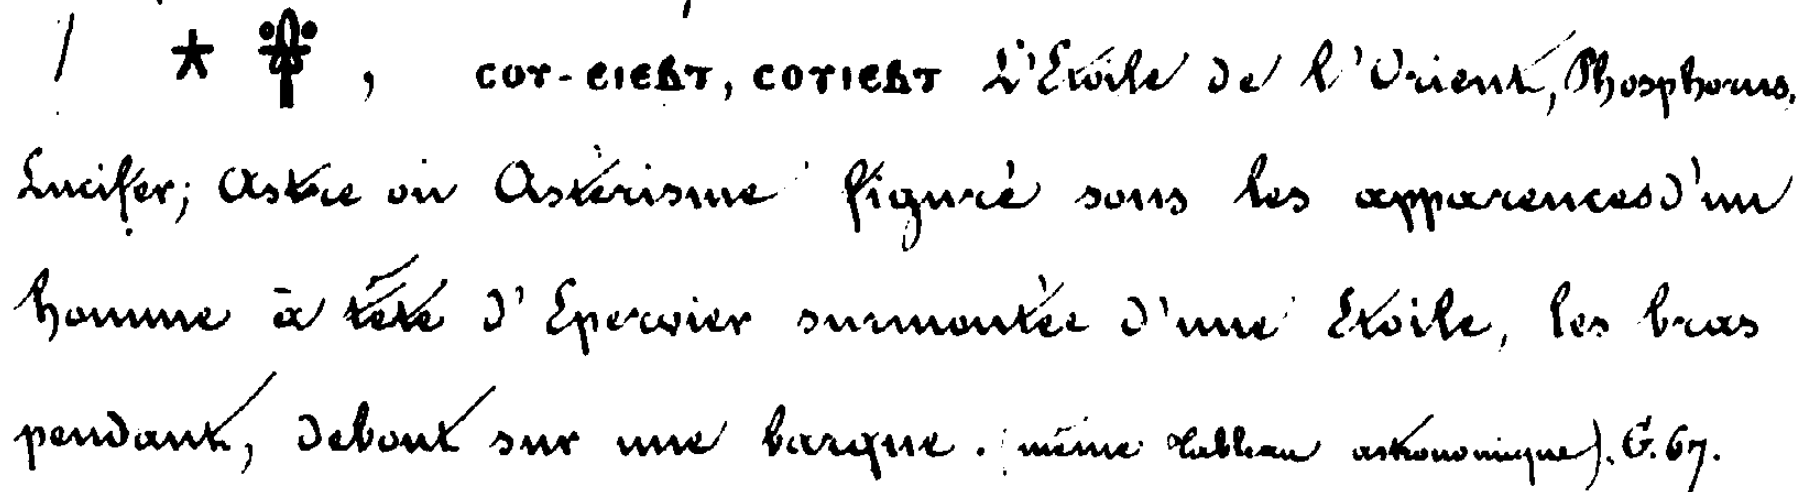 ★ 𓋁, ⲥⲟⲩ-ⲉⲓⲉⲃⲧ, ⲥⲟⲩⲓⲉⲃⲧ L'Etoile de l'Orient, Phosphorus,
Lucifer; Astre ou Astérisme figuré sous les apparences d'un
homme à tête d'Epervier surmontée d'une Etoile, les bras
pendant, debout sur une barque. (même tableau astronomique). G. 67.